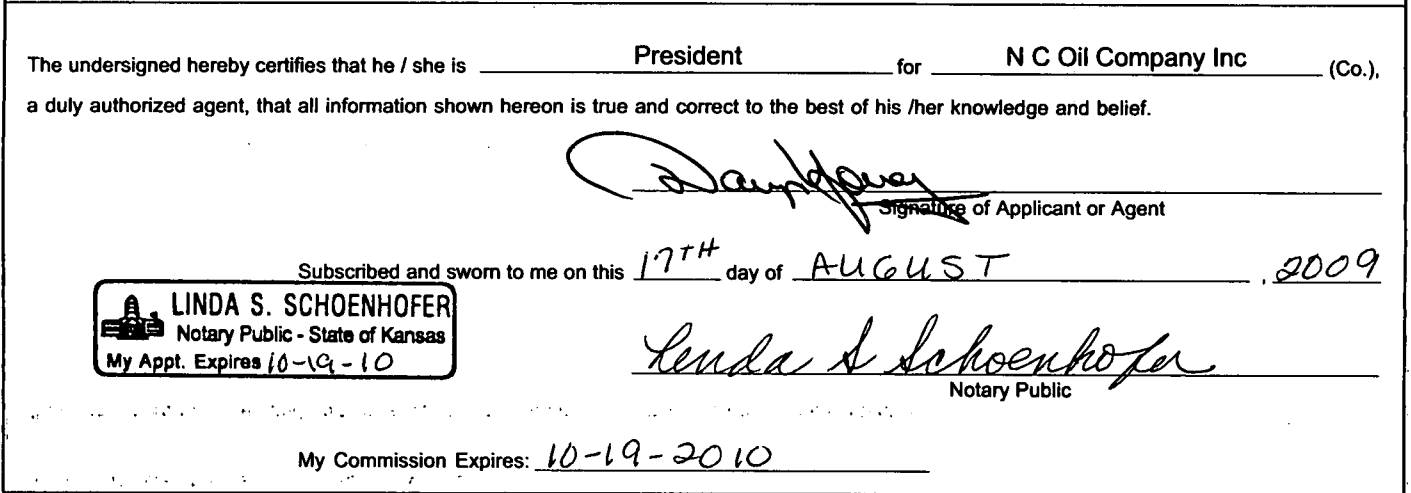 The undersigned hereby certifies that he / she is President for N C Oil Company Inc (Co.),
a duly authorized agent, that all information shown hereon is true and correct to the best of his /her knowledge and belief.
Signature of Applicant or Agent
Subscribed and sworn to me on this 17TH day of AUGUST , 2009
LINDA S. SCHOENHOFER
Notary Public - State of Kansas
My Appt. Expires 10-19-10
Lenda S Schoenhofer
Notary Public
My Commission Expires: 10-19-2010